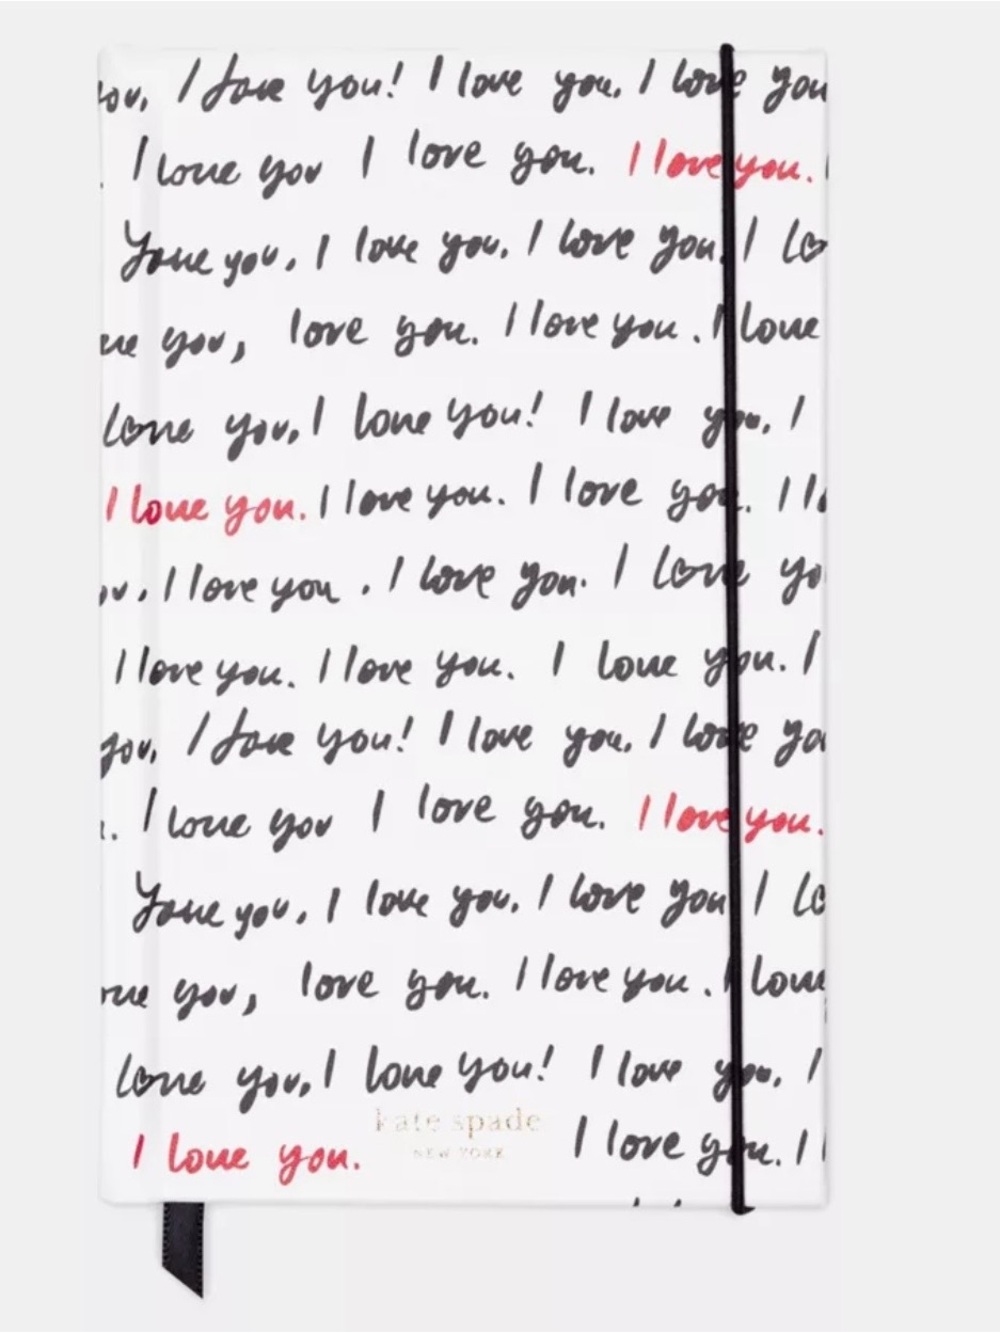 you, I love you! I love you. I love you
I love you I love you. I love you.
love you, I love you, I love you. I lo
ve you, love you. I love you. I love
love you, I love you! I love you, I
I love you. I love you. I love you. I lo
ou, I love you. I love you. I love yo
I love you. I love you. I love you. I
you, I love you! I love you. I love yo
I love you I love you. I love you.
love you, I love you, I love you I lo
ve you, love you. I love you. I love
love you, I love you! I love you, I
kate spade
NEW YORK
I love you. I love you. I